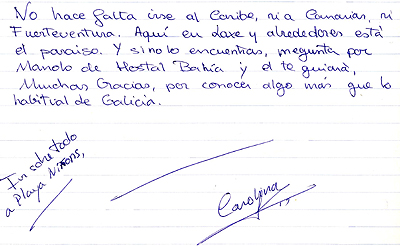 No hace falta irse al Caribe, ni a Canarias, ni
Fuerteventura. Aquí en Laxe y alrededores está
el paraíso. Y si no lo encuentras, pregunta por
Manolo de Hostal Bahía y él te guiará,
Muchas Gracias, por conocer algo más que lo
habitual de Galicia.
sobre todo
a Playa
Carolina